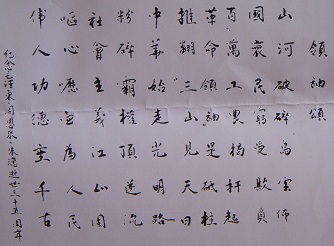 領袖頌
山河破碎烏雲佈
國衰民窮受欺負
百萬工農揭杆起
革命領袖是砥柱
推翻"三山"見天日
中華始走光明路
粉碎霸權頂逆流
社會主義江山固
嘔心瀝血為人民
偉人功德垂千古
纪念毛澤東·周恩來·朱德逝世三十五周年